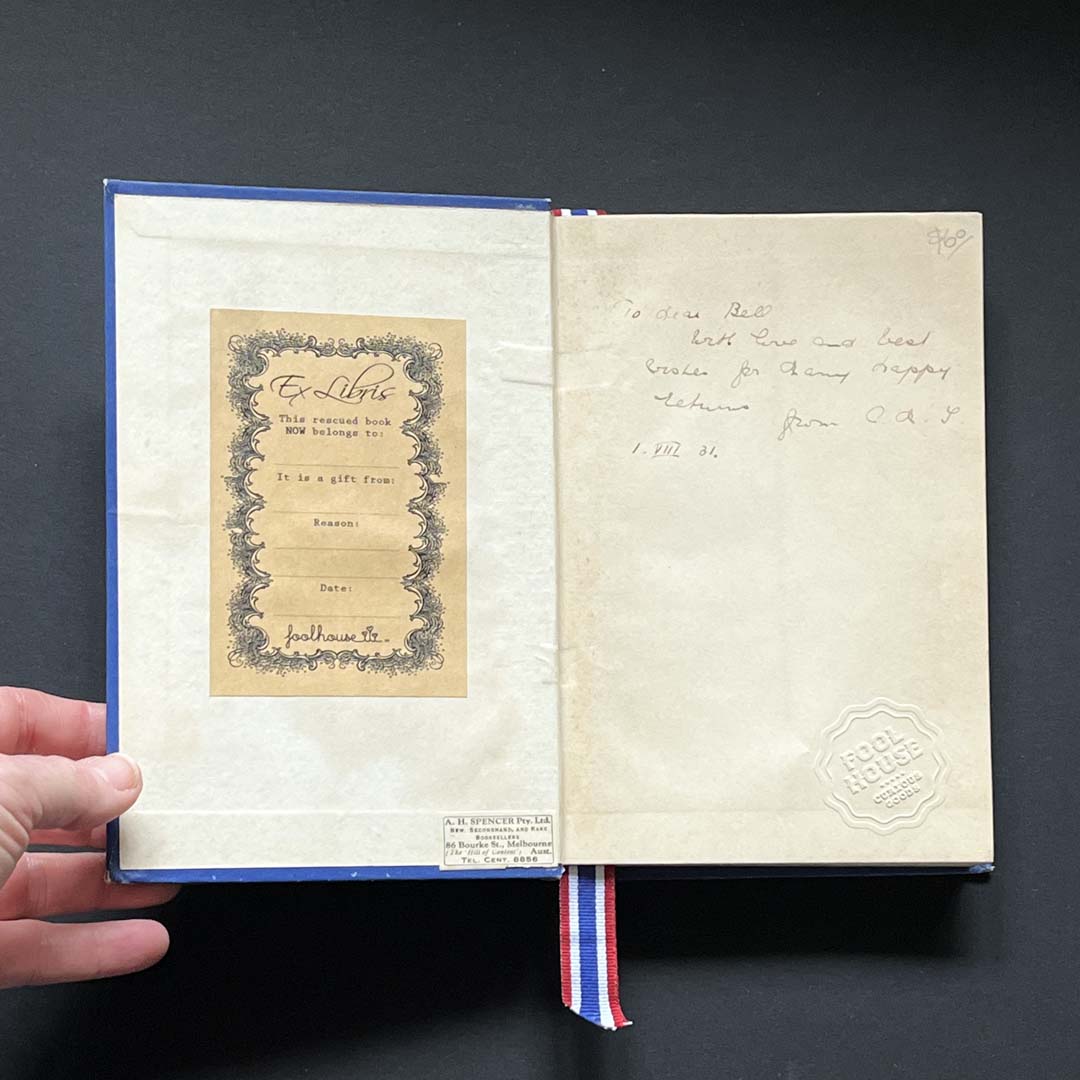 Ex Libris
This rescued book
NOW belongs to:
It is a gift from:
Reason:
Date:
foolhouse
A. H. SPENCER Pty. Ltd.
NEW, SECONDHAND, AND RARE
BOOKSELLERS
86 Bourke St., Melbourne
(The "Hill of Content") Aust.
TEL. CENT. 8856
To dear Bell
With love and best
wishes for many happy
returns from
1. VIII 31.
FOOL
HOUSE
CURIOUS
GOODS